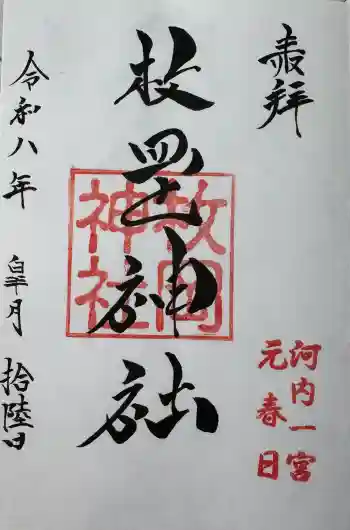 奉拝
河内一宮
元春日
枚罡神社
枚岡
神社
令和八年 皐月 拾陸日